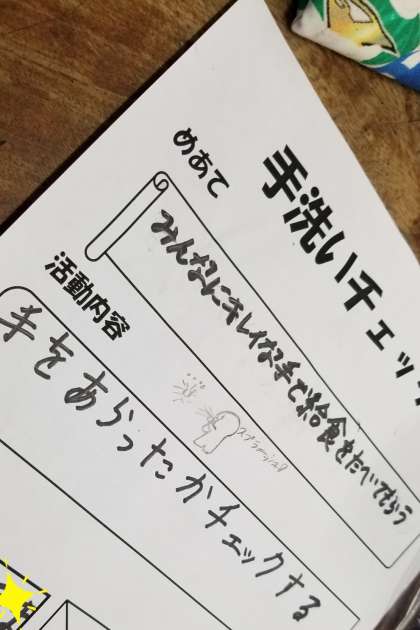 手洗いチェック
めあて
みんなにキレイな手で給食をたべてもらう
活動内容
手をあらったかチェックする